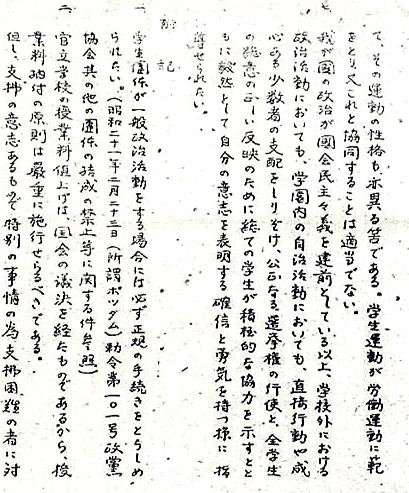 て、その運動の性格も亦異る筈である。学生運動が労働運動に範
をとり又これと協同することは適当でない。
七、我が國の政治が國会民主々義を建前としている以上、学校外における
政治活動においても、学園内の自治活動においても、直接行動や成
心ある少数者の支配をしりぞけ、公正なる選挙権の行使と、全学生
の総意の正しい反映のために総ての学生が積極的な協力を示すとと
もに毅然として自分の意志を表明する確信と勇気を持つ様に指
導せられたい。
附記
一、学生團体が一般政治活動をする場合には必ず正規の手続きをとらしめ
られたい。（昭和二十一年二月二十三日（所謂ポツダム）勅令第一〇一号政黨
協会其の他の團体の結成の禁止等に関する件参照）
二、官立学校の授業料値上げは、国会の議決を経たものであるから、授
業料納付の原則は厳重に施行せらるべきである。
但し、支拂の意志あるもので特別の事情の為支拂困難の者に対